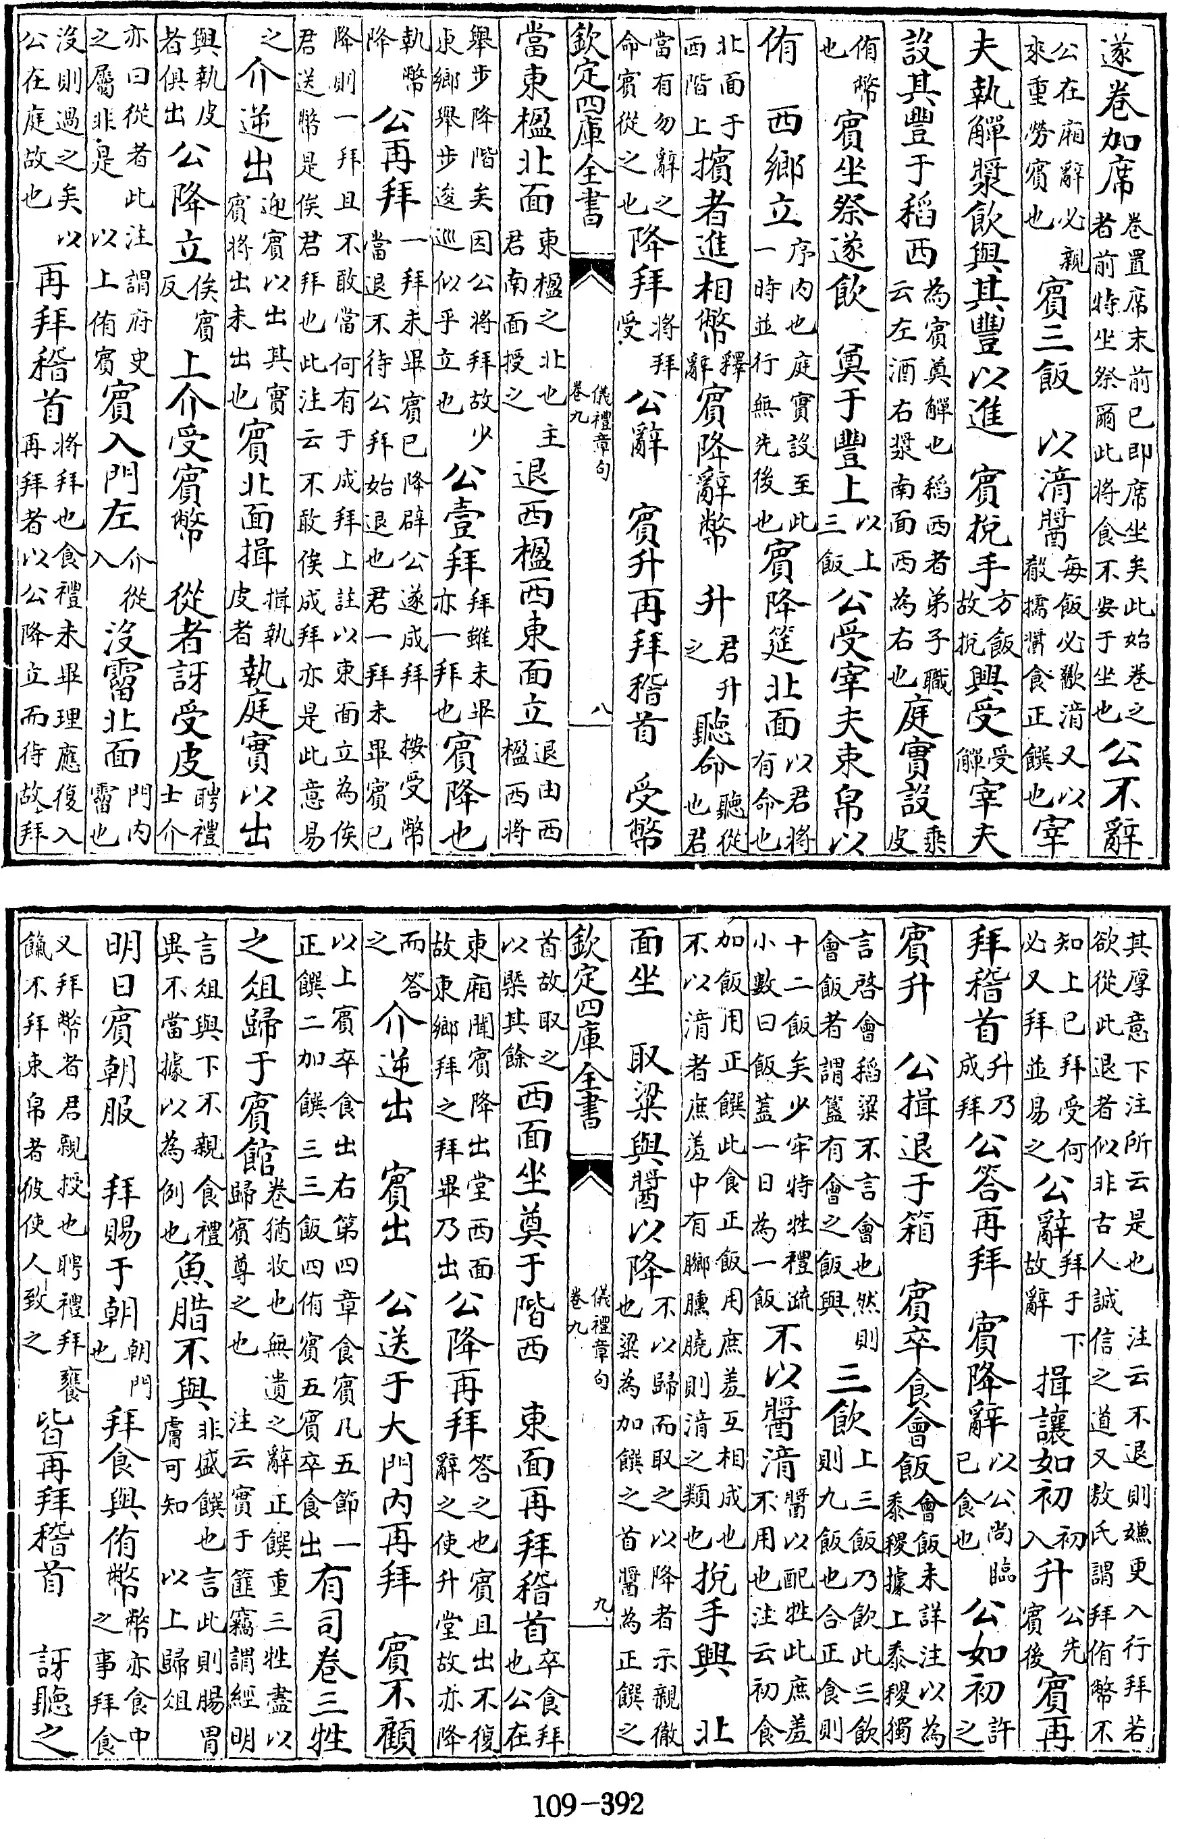 遂卷加席卷置席末前已即席坐矣此始卷之者前特坐祭爾此將食不安于坐也公不辭
公在廂辭必親來重勞賓也賓三飯 以湆醬每飯必歠湆又以殽擩醬食正饌也宰
夫執觶漿飲與其豐以進 賓捝手方飯故捝興受受觶宰夫
設其豐于稻西為賓奠觶也稻西者弟子職云左酒右漿南面西為右也庭實設乘皮
侑幣也賓坐祭遂飲 奠于豐上以上三飯公受宰夫束帛以
侑 西鄉立序內也庭實設至此一時並行無先後也賓降筵北面以君將有命也
北面于西階上擯者進相幣釋辭賓降辭幣 升君升之聽命聽從也君
當有勿辭之命賓從之也降拜將拜受公辭 賓升再拜稽首 受幣
欽定四庫全書 儀禮章句 卷九 八
當東楹北面東楹之北也主君南面授之退西楹西東面立退由西楹西將
舉步降階矣因公將拜故少東鄉舉步逡巡似乎立也公壹拜拜雖未畢亦一拜也賓降也
執幣降公再拜一拜未畢賓已降辟公遂成拜 按受幣當退不待公拜始退也君一拜未畢賓已
降則一拜且不敢當何有于成拜上註以東面立為俟君送幣是俟君拜也此注云不敢俟成拜亦是此意易
之介逆出迎賓以出其實賓將出未出也賓北面揖揖執皮者執庭實以出
與執皮者俱出公降立俟賓反上介受賓幣 從者訝受皮聘禮士介
亦曰從者此注謂府史之屬非是 以上侑賓賓入門左介從入沒霤北面門內霤也
沒則過之矣以公在庭故也再拜稽首將拜也食禮未畢理應復入再拜者以公降立而待故拜
其厚意下注所云是也 注云不退則嫌更入行拜若欲從此退者似非古人誠信之道又敖氏謂拜侑幣不
知上已拜受何必又拜並易之公辭拜于下故辭揖讓如初初入升公先賓後賓再
拜稽首升乃成拜公答再拜 賓降辭以公尚臨已食也公如初許之
賓升 公揖退于箱 賓卒食會飯會飯未詳注以為黍稷據上黍稷獨
言啓會稻粱不言會也然則會飯者謂簋有會之飯與三飲上三飯乃飲此三飲則九飯也合正食則
十二飯矣少牢特牲禮疏小數曰飯蓋一口為一飯不以醬湆醬以配牲此庶羞不用也注云初食
加飯用正饌此食正飯用庶羞互相成也不以湆者庶羞中有膷臐膮則湆之類也捝手興 北
面坐 取粱與醬以降不以歸而取之以降者示親徹也粱為加饌之首醬為正饌之
欽定四庫全書 儀禮章句 卷九 九
首故取之以槩其餘西面坐奠于階西 東面再拜稽首卒食拜也公在
東廂聞賓降出堂西面故東鄉拜之拜畢乃出公降再拜答之也賓且出不復辭之使升堂故亦降
而答之介逆出 賓出 公送于大門內再拜 賓不顧
以上賓卒食出右第四章食賓凡五節一正饌二加饌三三飯四侑賓五賓卒食出有司卷三牲
之俎歸于賓館卷猶收也無遺之辭正饌重三牲盡以歸賓尊之也 注云實于篚竊謂經明
言俎與下不親食禮異不當據以為例也魚腊不與非盛饌也言此則腸胃膚可知 以上歸俎
明日賓朝服 拜賜于朝朝門也拜食與侑幣幣亦食中之事拜食
又拜幣者君親授也聘禮拜饔餼不拜束帛者彼使人致之皆再拜稽首 訝聽之
109-392